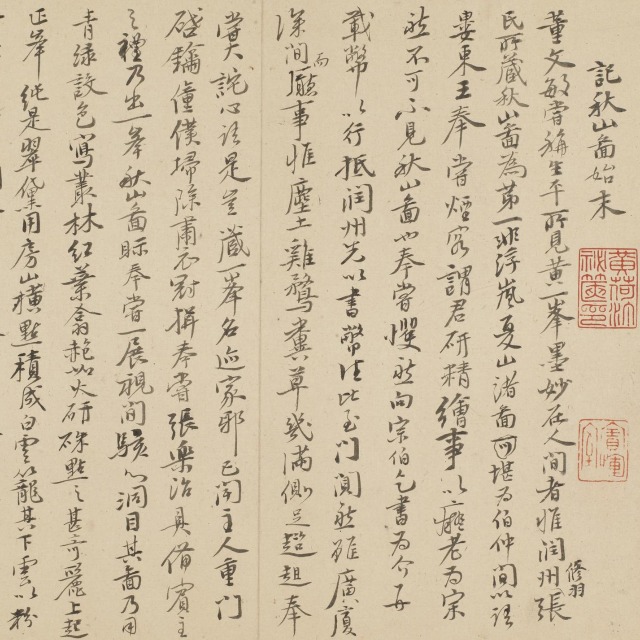 記秋山圖始末
董文敏嘗稱生平所見黃一峯墨妙在人間者惟潤州張
修羽
氏所藏秋山圖為第一非浮嵐夏山諸圖可堪為伯仲間以語
婁東王奉嘗煙客謂君研精繪事以癡老為宗
然不可不見秋山圖也奉嘗戄然向宗伯乞書為介并
載幣以行抵潤州先以書幣往比至門闃然雖廣廈
深間而廳事惟塵土雞鶩糞草幾滿側足趑趄奉
嘗大詫心語是豈藏一峯名迹家邪已聞主人重門
啓鑰僮僕掃除肅衣冠揖奉嘗張樂治具備賓主
之禮乃出一峯秋山圖眎奉嘗一展視間駭心洞目其圖乃用
青綠設色寫叢林紅葉翕赩如火研硃點之甚奇麗上起
正峯純是翠黛用房山橫點積成白雲籠其下雲以粉